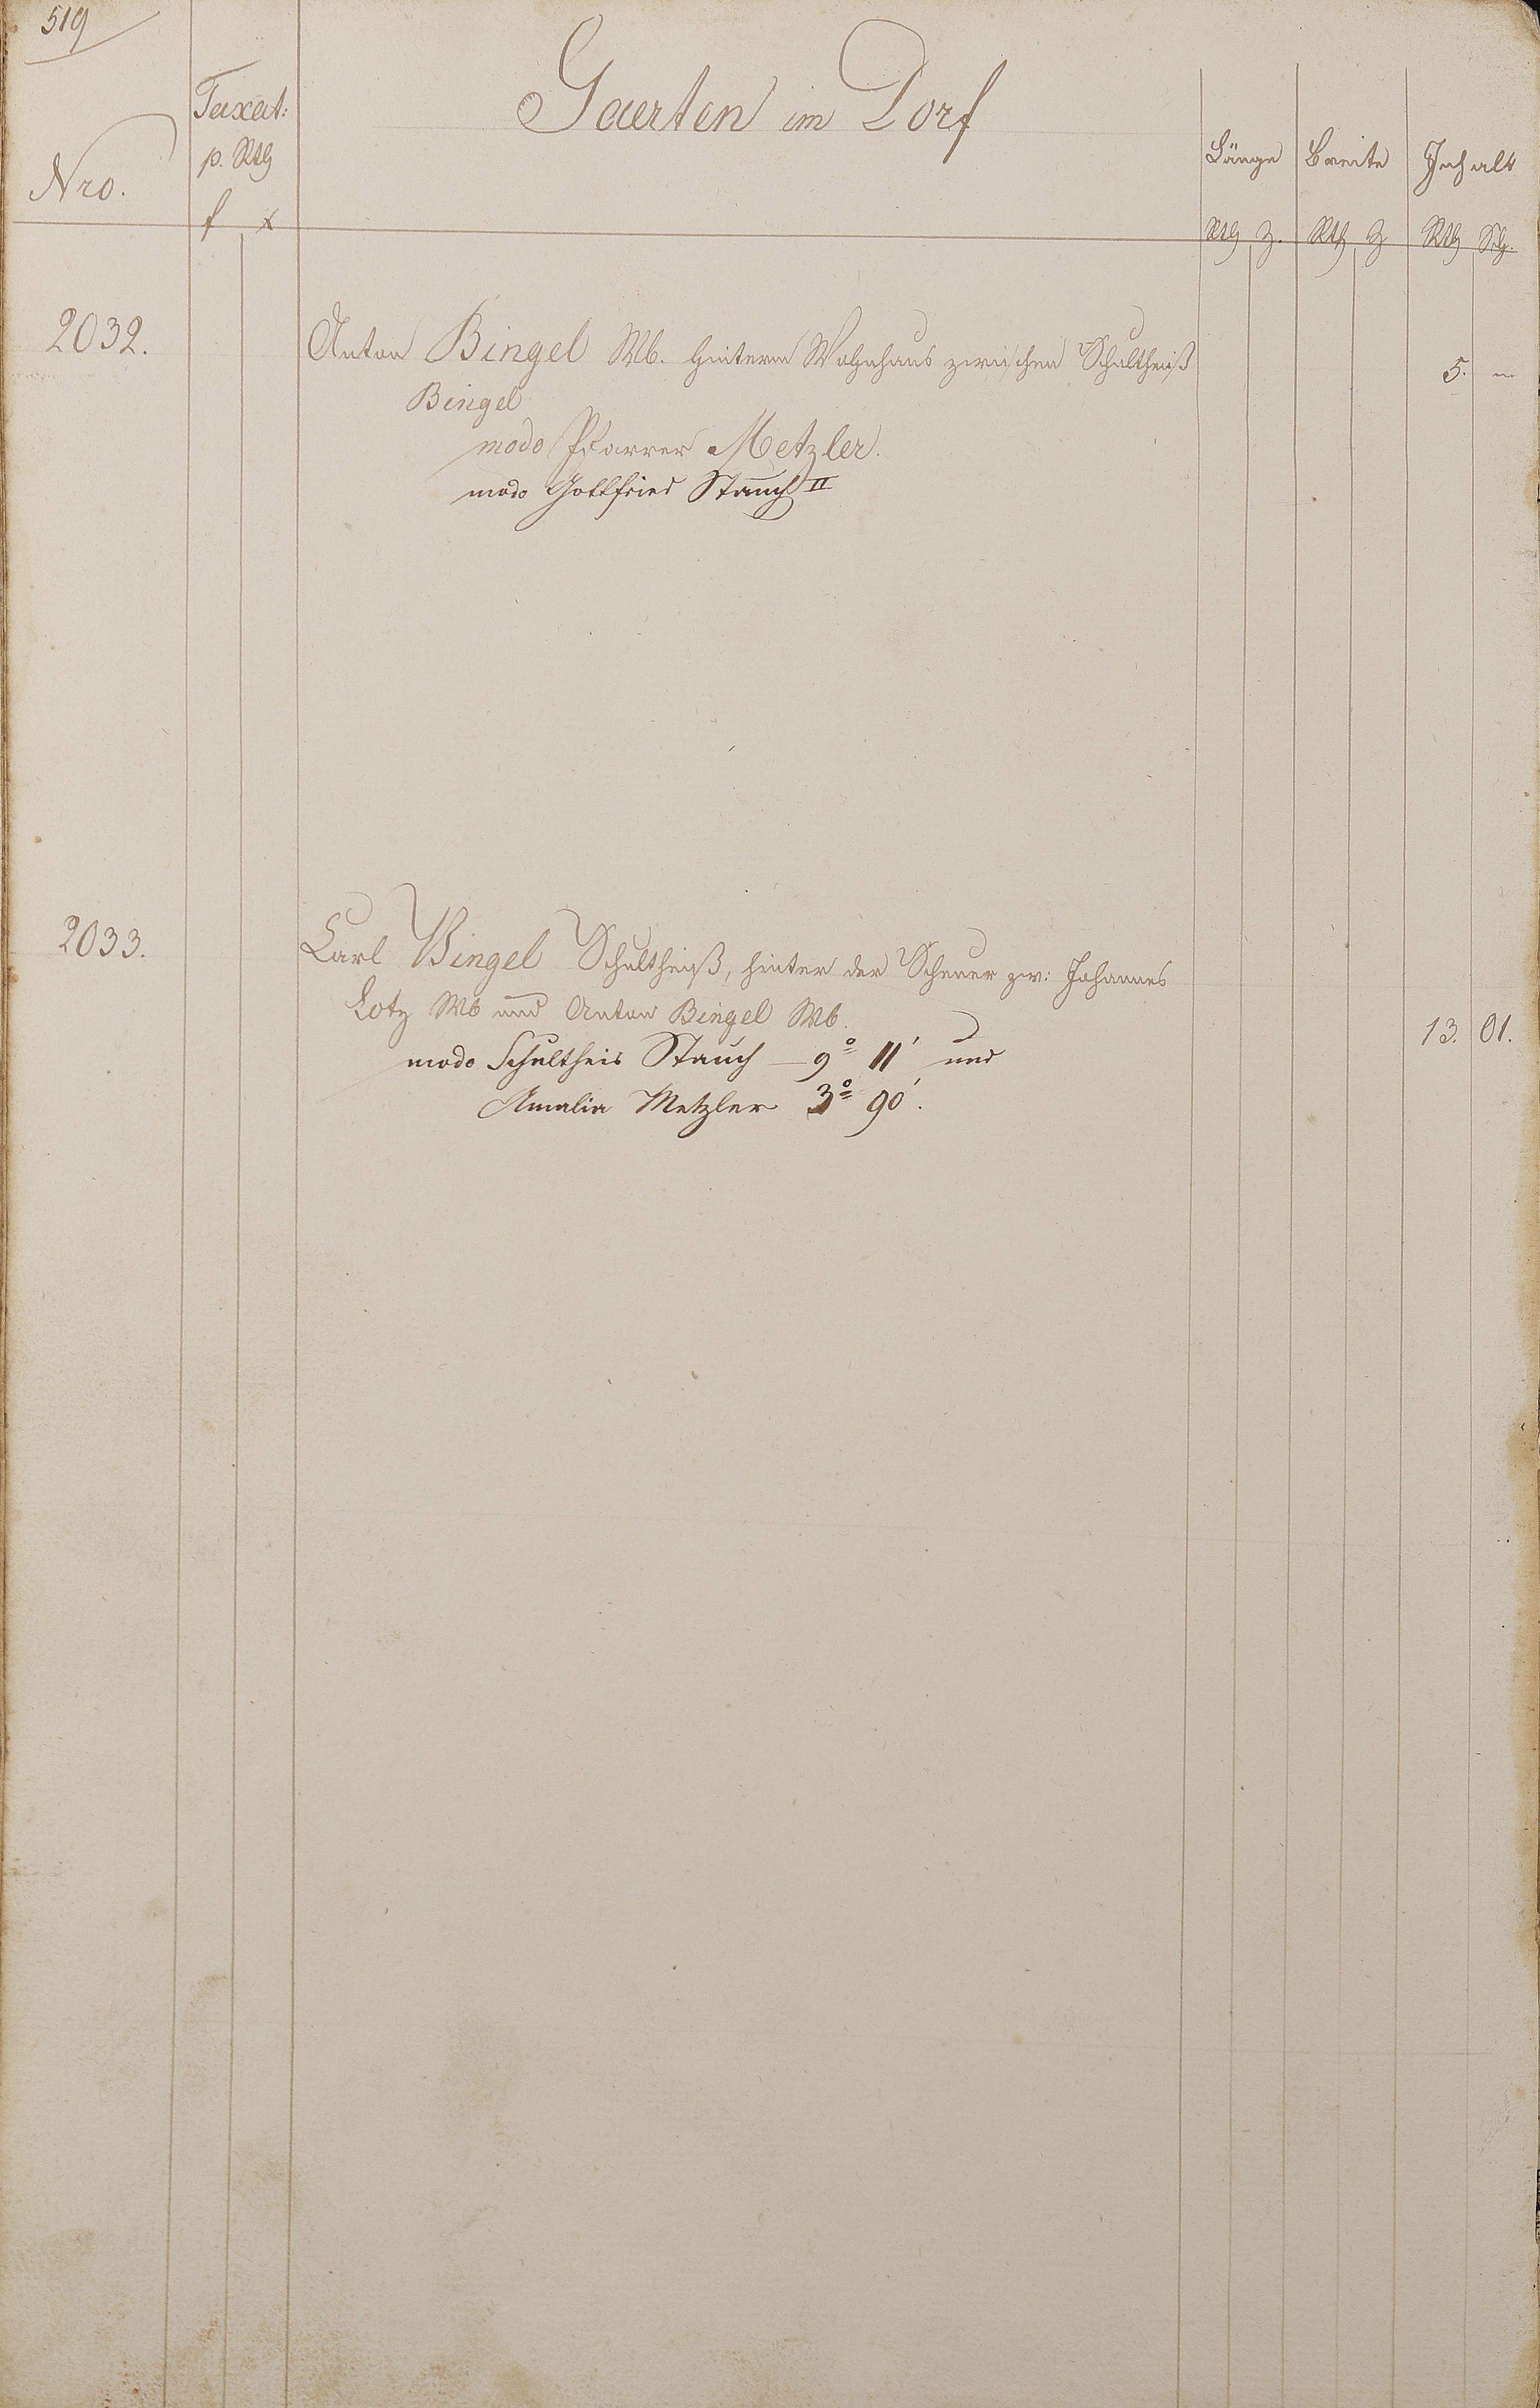 519
Gaerten im Dorf
Nro.
Taxat:
p. Rth
f x
Länge Breite Inhalt
Rth Z. Rth Z Rth Sch.
2032. Anton Bingel Wb. hinterm Wohnhaus zwischen Schultheiß 5. —
Bingel
modo Pfarrer Metzler.
modo Gottfried Stauch II
2033. Carl Bingel Schultheiß, hinter der Scheuer zw: Johannes
Lotz Wb und Anton Bingel Wb. 13. 01.
modo Schultheis Stauch — 9° 11' und
Amalia Metzler 3° 90'.